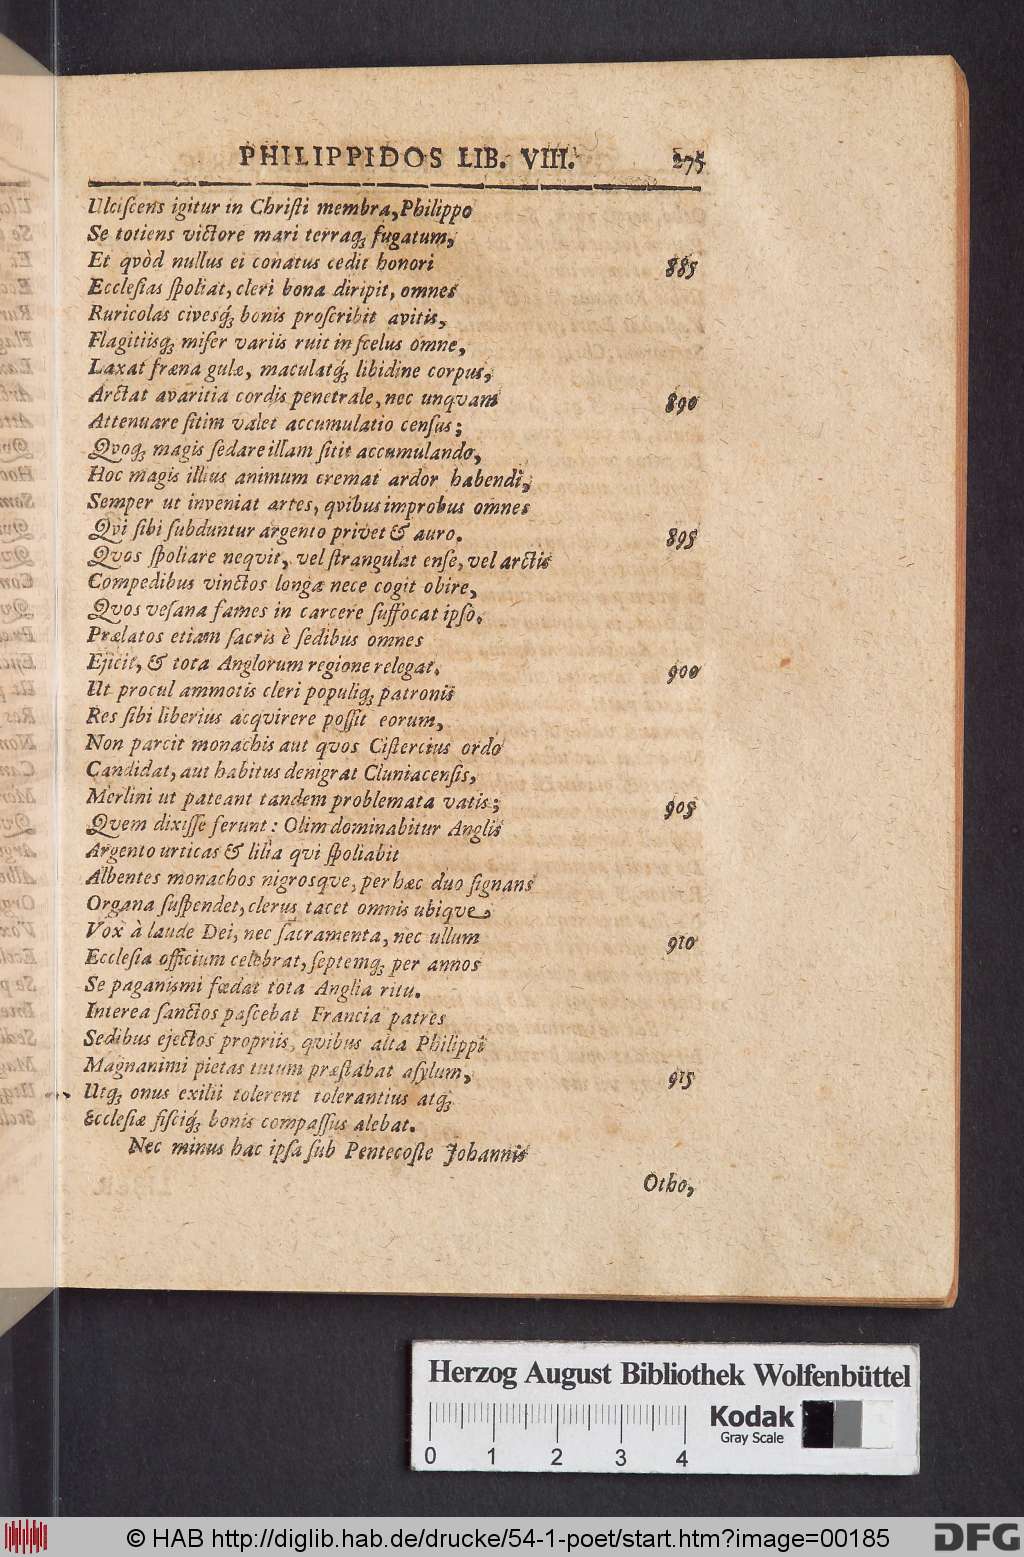 PHILIPPIDOS LIB. VIII. 275
Ulciſcens igitur in Chriſti membra, Philippo
Se totiens victore mari terraq; fugatum,
Et qvòd nullus ei conatus cedit honori 885
Eccleſias ſpoliat, cleri bona diripit, omnes
Ruricolas civesq́; bonis proſcribit avitis,
Flagitiisq; miſer variis ruit in ſcelus omne,
Laxat fræna gulæ, maculatq́; libidine corpus,
Arctat avaritia cordis penetrale, nec unqvam 890
Attenuare ſitim valet accumulatio cenſus;
Qvoq; magis ſedare illam ſitit accumulando,
Hoc magis illius animum cremat ardor habendi,
Semper ut inveniat artes, qvibus improbus omnes
Qvi ſibi ſubduntur argento privet & auro. 895
Qvos ſpoliare neqvit, vel ſtrangulat enſe, vel arctis
Compedibus vinctos longa nece cogit obire,
Qvos veſana fames in carcere ſuffocat ipſo.
Prælatos etiam ſacris è ſedibus omnes
Ejicit, & tota Anglorum regione relegat. 900
Ut procul ammotis cleri populiq; patronis
Res ſibi liberius acqvirere poſſit eorum,
Non parcit monachis aut qvos Ciſtercius ordo
Candidat, aut habitus denigrat Cluniacenſis,
Merlini ut pateant tandem problemata vatis; 905
Qvem dixiſſe ferunt: Olim dominabitur Anglis
Argento urticas & lilia qvi ſpoliabit
Albentes monachos nigrosqve, per hæc duo ſignans
Organa ſuſpendet, clerus tacet omnis ubiqve,
Vox à laude Dei, nec ſacramenta, nec ullum 910
Eccleſia officium celebrat, ſeptemq; per annos
Se paganismi fœdat tota Anglia ritu.
Interea ſanctos paſcebat Francia patres
Sedibus ejectos propriis, qvibus alta Philippi
Magnanimi pietas tutum præſtabat aſylum, 915
Utq; onus exilii tolerent tolerantius atq;
Eccleſiæ fiſciq́; bonis compaſſus alebat.
Nec minus hac ipſa ſub Pentecoſte Johannis
Otho,
Herzog August Bibliothek Wolfenbüttel
Kodak
Gray Scale
0 1 2 3 4
© HAB http://diglib.hab.de/drucke/54-1-poet/start.htm?image=00185
DFG